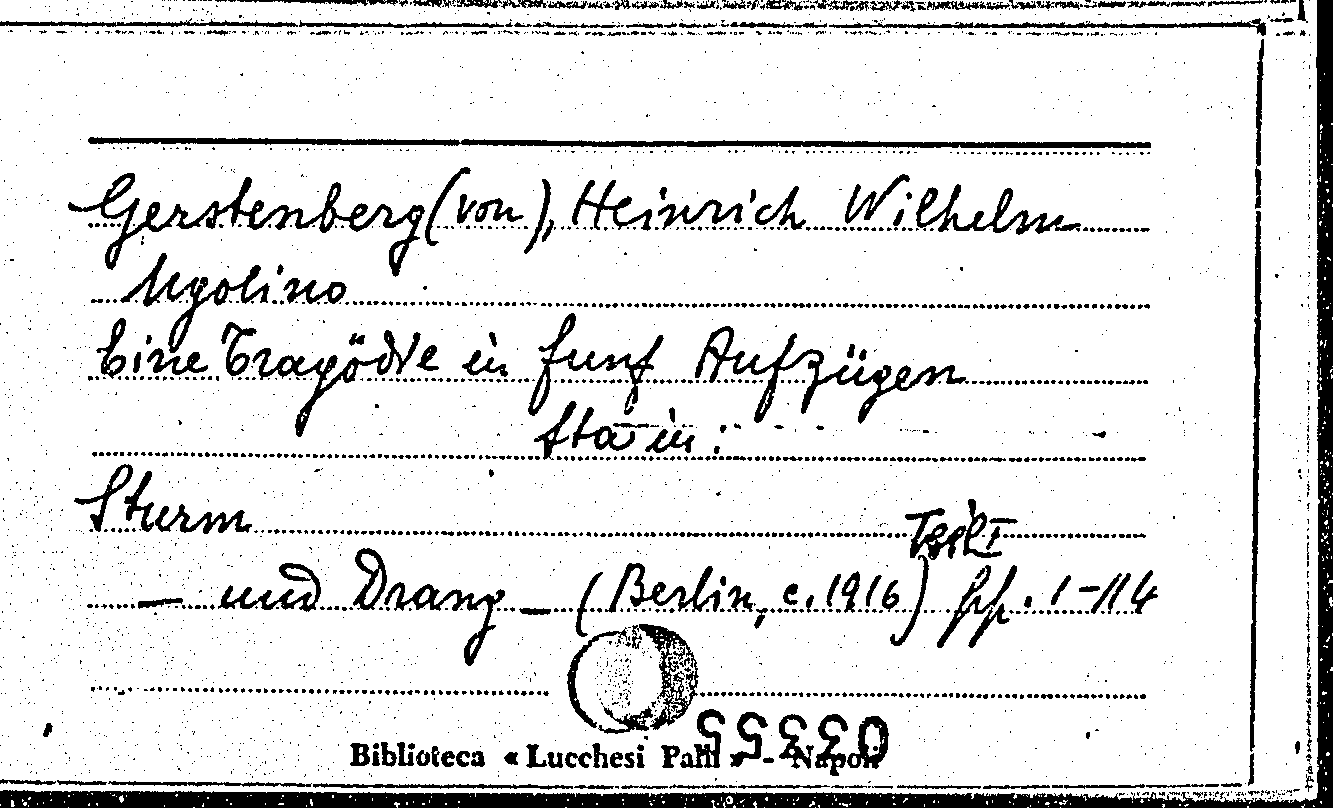 Gerstenberg (von), Heinrich Wilhelm
Ugolino
Eine Tragödie in fünf Aufzügen
sta in:
Sturm
Teil I
— und Drang — (Berlin, c. 1916) pp. 1-114
Biblioteca « Lucchesi Palli » - Napoli